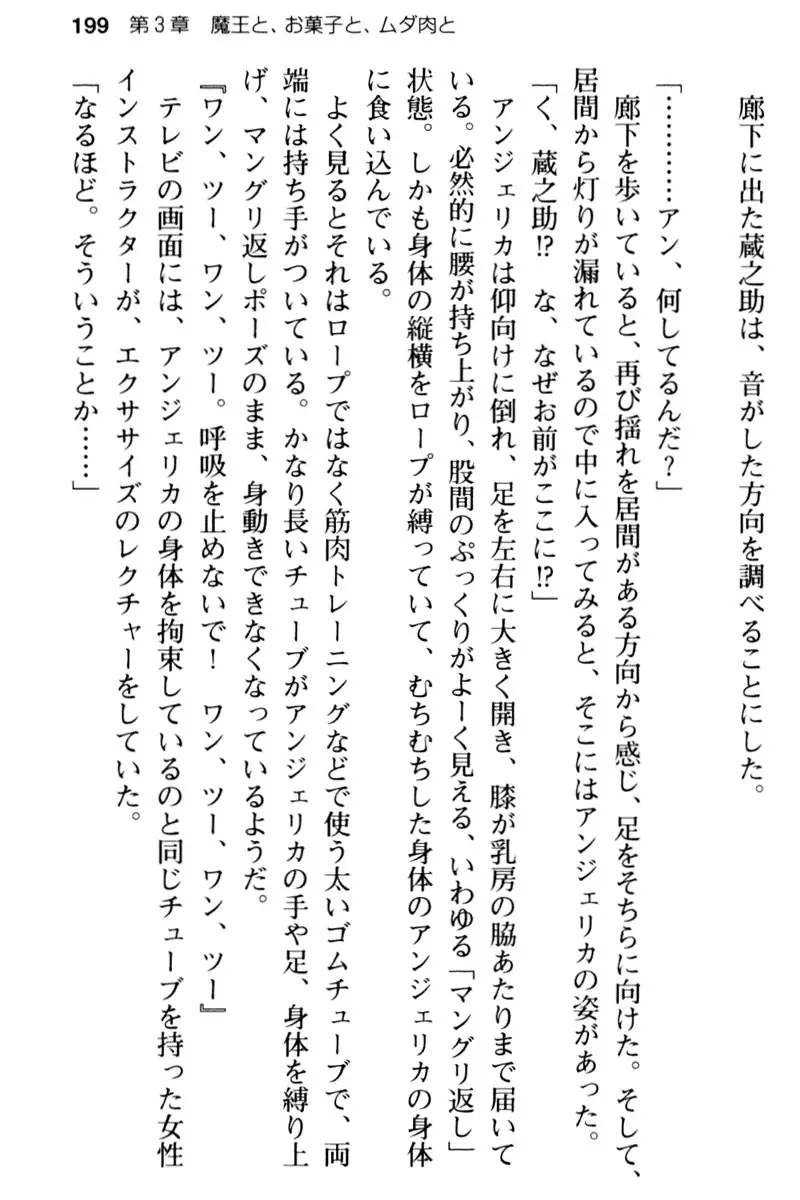 199 第3章 魔王と、お菓子と、ムダ肉と
廊下に出た蔵之助は、音がした方向を調べることにした。
「…………アン、何してるんだ？」
廊下を歩いていると、再び揺れを居間がある方向から感じ、足をそちらに向けた。そして、
居間から灯りが漏れているので中に入ってみると、そこにはアンジェリカの姿があった。
「く、蔵之助!?　な、なぜお前がここに!?」
アンジェリカは仰向けに倒れ、足を左右に大きく開き、膝が乳房の脇あたりまで届いて
いる。必然的に腰が持ち上がり、股間のぷっくりがよーく見える、いわゆる「マングリ返し」
状態。しかも身体の縦横をロープが縛っていて、むちむちした身体のアンジェリカの身体
に食い込んでいる。
よく見るとそれはロープではなく筋肉トレーニングなどで使う太いゴムチューブで、両
端には持ち手がついている。かなり長いチューブがアンジェリカの手や足、身体を縛り上
げ、マングリ返しポーズのまま、身動きできなくなっているようだ。
『ワン、ツー、ワン、ツー。呼吸を止めないで！　ワン、ツー、ワン、ツー』
テレビの画面には、アンジェリカの身体を拘束しているのと同じチューブを持った女性
インストラクターが、エクササイズのレクチャーをしていた。
「なるほど。そういうことか……」